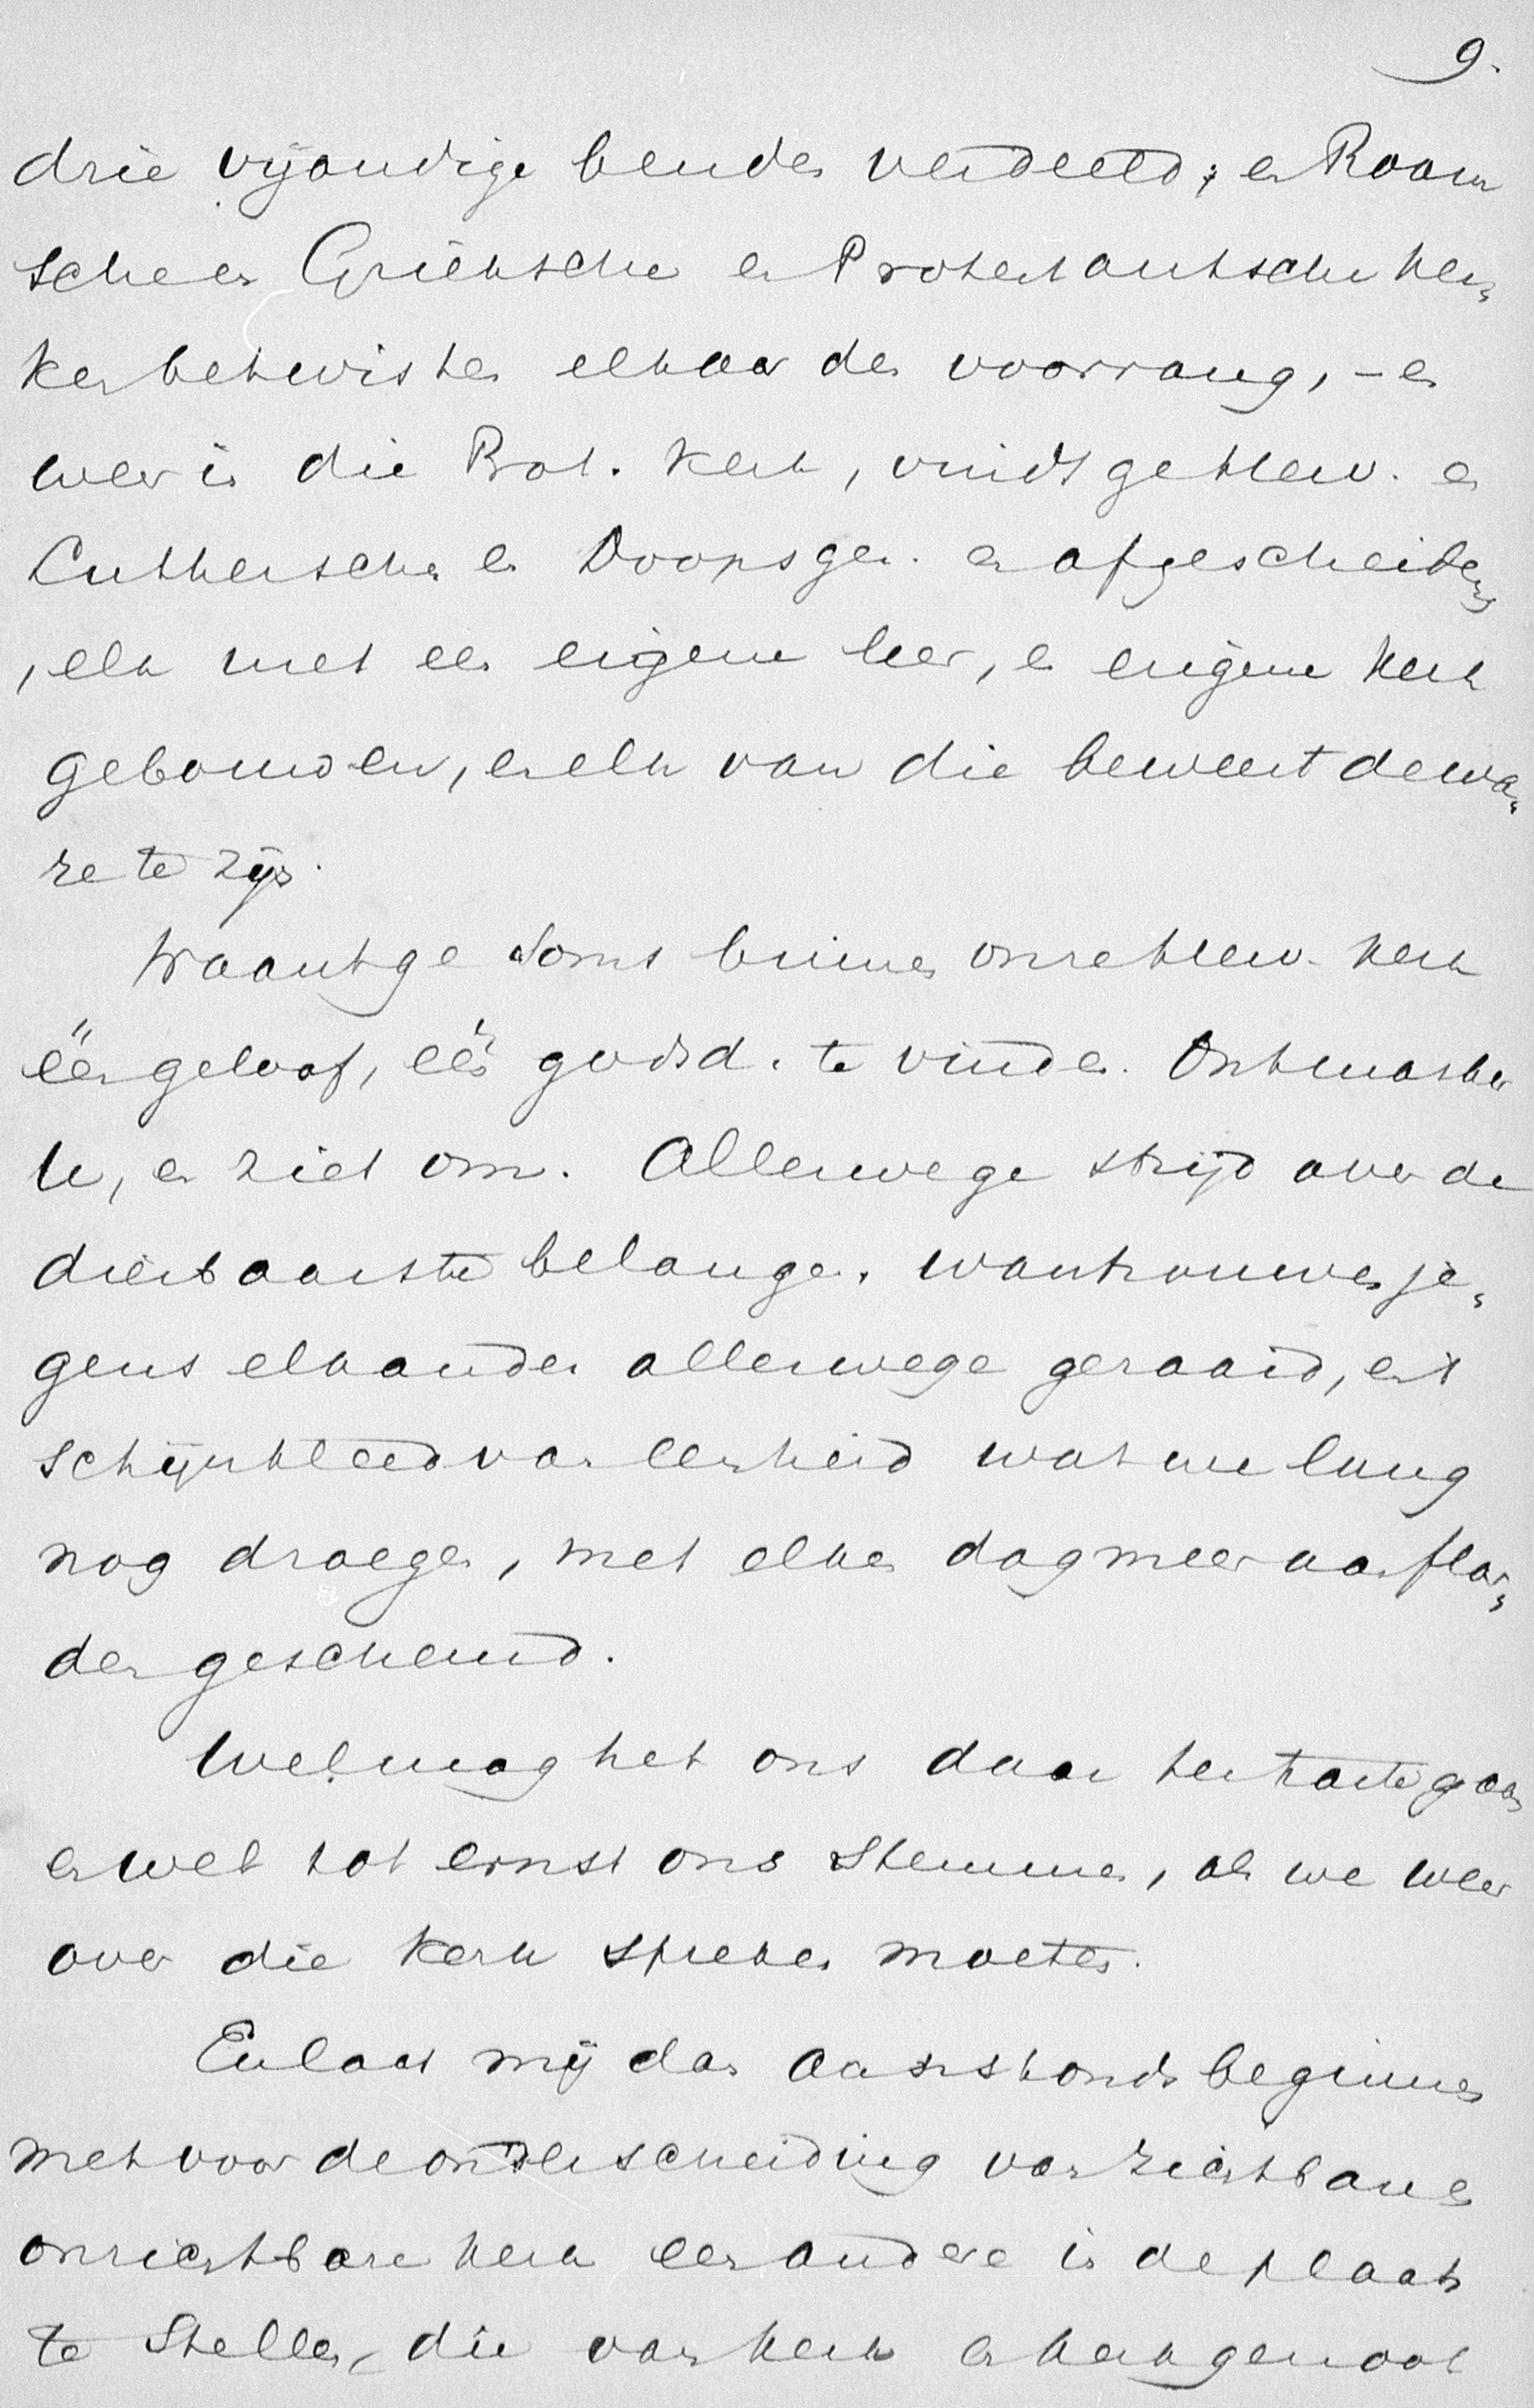 9.
drie vijandige benden verdeeld; en Room
sche en Grieksche en Protestantsche ker„
ken betwisten elkaar den voorrang, – en
weer in die Prot. kerk, vindt ge Herv. en
Luthersche en Doopsgez. en afgescheiden
, elk met een eigene leer, en eigene kerk
gebouwen, en elk van die beweert de wa„
re te zijn.
Waant ge soms binnen onze Herv. kerk
één geloof, één godsd. te vinden. Ontmasker
U, en ziet om. Allerwege strijd over de
dierbaarste belangen. wantrouwen je„
gens elkander allerwege gezaaid, en 't
schijnkleed van eenheid wat we lang
nog droegen, met elken dag meer aan flar„
den gescheurd.
Wel mag het ons daar ter harte gaan
en wel tot ernst ons stemmen, als we weer
over die kerk spreken moeten.
En laat mij dan aanstonds beginnen
met voor de onderscheiding van zichtbare en
onzichtbare kerk een andere in de plaats
te stellen, die van kerk en kerkgenoot